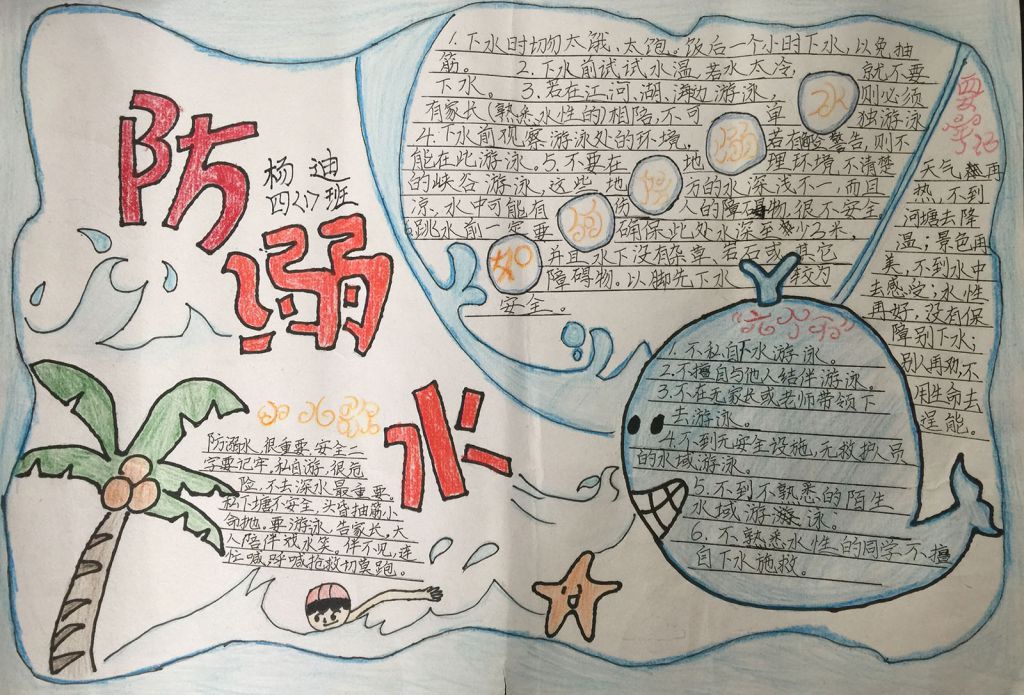 防溺水
杨迪
四(2)班
如何防溺水
1.下水时切勿太饿、太饱。饭后一个小时下水,以免抽
筋。 2.下水前试试水温,若水太冷, 就不要
下水。 3.若在江、河、湖、海边游泳, 则必须
有家长(熟悉水性的)相陪,不可 单 独游泳
4.下水前观察游泳处的环境, 若有 警告,则不
能在此游泳。5.不要在 地 理环境不清楚
的峡谷游泳,这些地 方的水深浅不一,而且
凉,水中可能有 伤 人的障碍物,很不安全
6.跳水前一定要 确保此处水深至少3米,
并且水下没有杂草、岩石或 其它
障碍物。以脚先下水 较为
安全。
要牢记
天气 再
热,不到
河塘去降
温;景色再
美,不到水中
去感受;水性
再好,没有保
障别下水;
别人再劝,不
用生命去
逞能。
"六不准"
1.不私自下水游泳。
2.不擅自与他人结伴游泳。
3.不在无家长或老师带领下
去游泳。
4.不到无安全设施,无救护人员
的水域游泳。
5.不到不熟悉的陌生
水域游泳。
6.不熟悉水性的同学不擅
自下水施救。
防溺水,很重要,安全二
字要记牢,私自游,很危
险,不去深水最重要。
私下塘不安全,头昏抽筋小
命抛,要游泳,告家长,大
人陪伴戏水笑。伴不见,连
忙喊,呼喊抢救切莫跑。